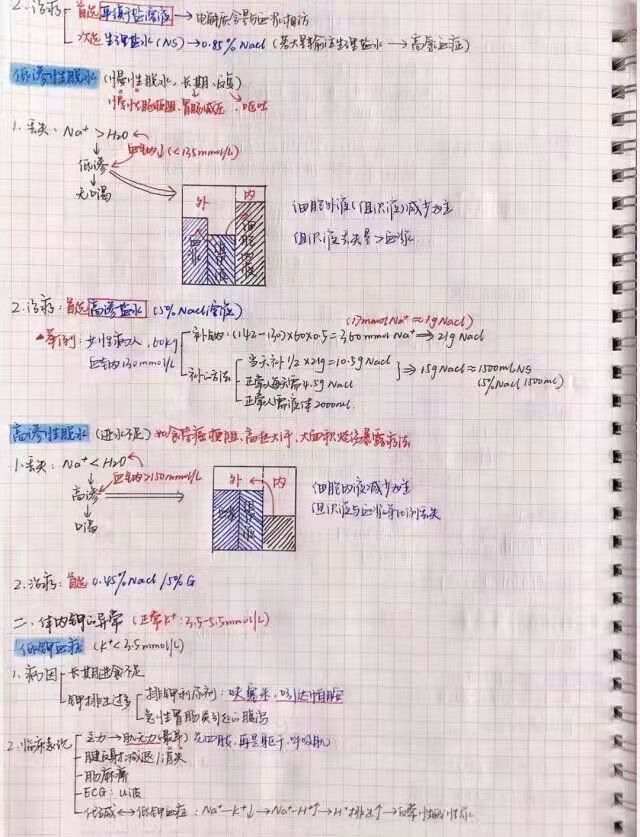 2.治疗 首选 平衡盐溶液 → 电解质含量与血浆相仿
次选 生理盐水(NS) → 0.85%Nacl (若大量输注生理盐水 → 高氯血症)
低渗性脱水 (慢性脱水, 长期、反复)
慢性肠梗阻, 胃肠减压, 呕吐
1.丢失: Na⁺ > H2O
血钠↓(<135mmol/L)
↓
低渗
↓
无口渴
外 内
血浆 组织液 细胞内液
细胞外液(组织液)减少为主
组织液丢失量>血浆
2.治疗: 首选 高渗盐水 (5%Nacl溶液)
(17mmol Na⁺ ≈ 1g Nacl)
举例: 女性病人, 60kg
血钠130mmol/L
补钠: (142-130)×60×0.5 = 360mmol Na⁺ ⇒ 21g Nacl
补液方法
当天补 1/2×21g = 10.5g Nacl
正常人每天需4.5g Nacl
正常人需液体2000ml.
⇒ 15g Nacl ≈ 1500ml NS
(5%Nacl 1500ml)
高渗性脱水 (进水不足) 如食管癌梗阻、高热大汗、大面积烧伤暴露疗法
1.丢失: Na⁺ < H2O
血钠>150mmol/L
↓
高渗
↓
口渴
外 内
血浆 组织液
细胞内液减少为主
组织液与血浆等比例丢失
2.治疗: 首选 0.45%Nacl /5%G
二、体内钾的异常 (正常K⁺: 3.5-5.5mmol/L)
低钾血症 (K⁺<3.5mmol/L)
1.病因 长期进食不足
钾排出过多 排钾利尿剂: 呋塞米, 吲达帕胺
急性胃肠炎引起的腹泻
2.临床表现 乏力 → 肌无力(最早) 先四肢, 再是躯干, 呼吸肌
腱反射减退/消失
肠麻痹
ECG: U波
代碱 ↔ 低钾血症: Na⁺-K⁺↓ → Na⁺-H⁺↑ → H⁺排出↑ → 反常性酸性尿